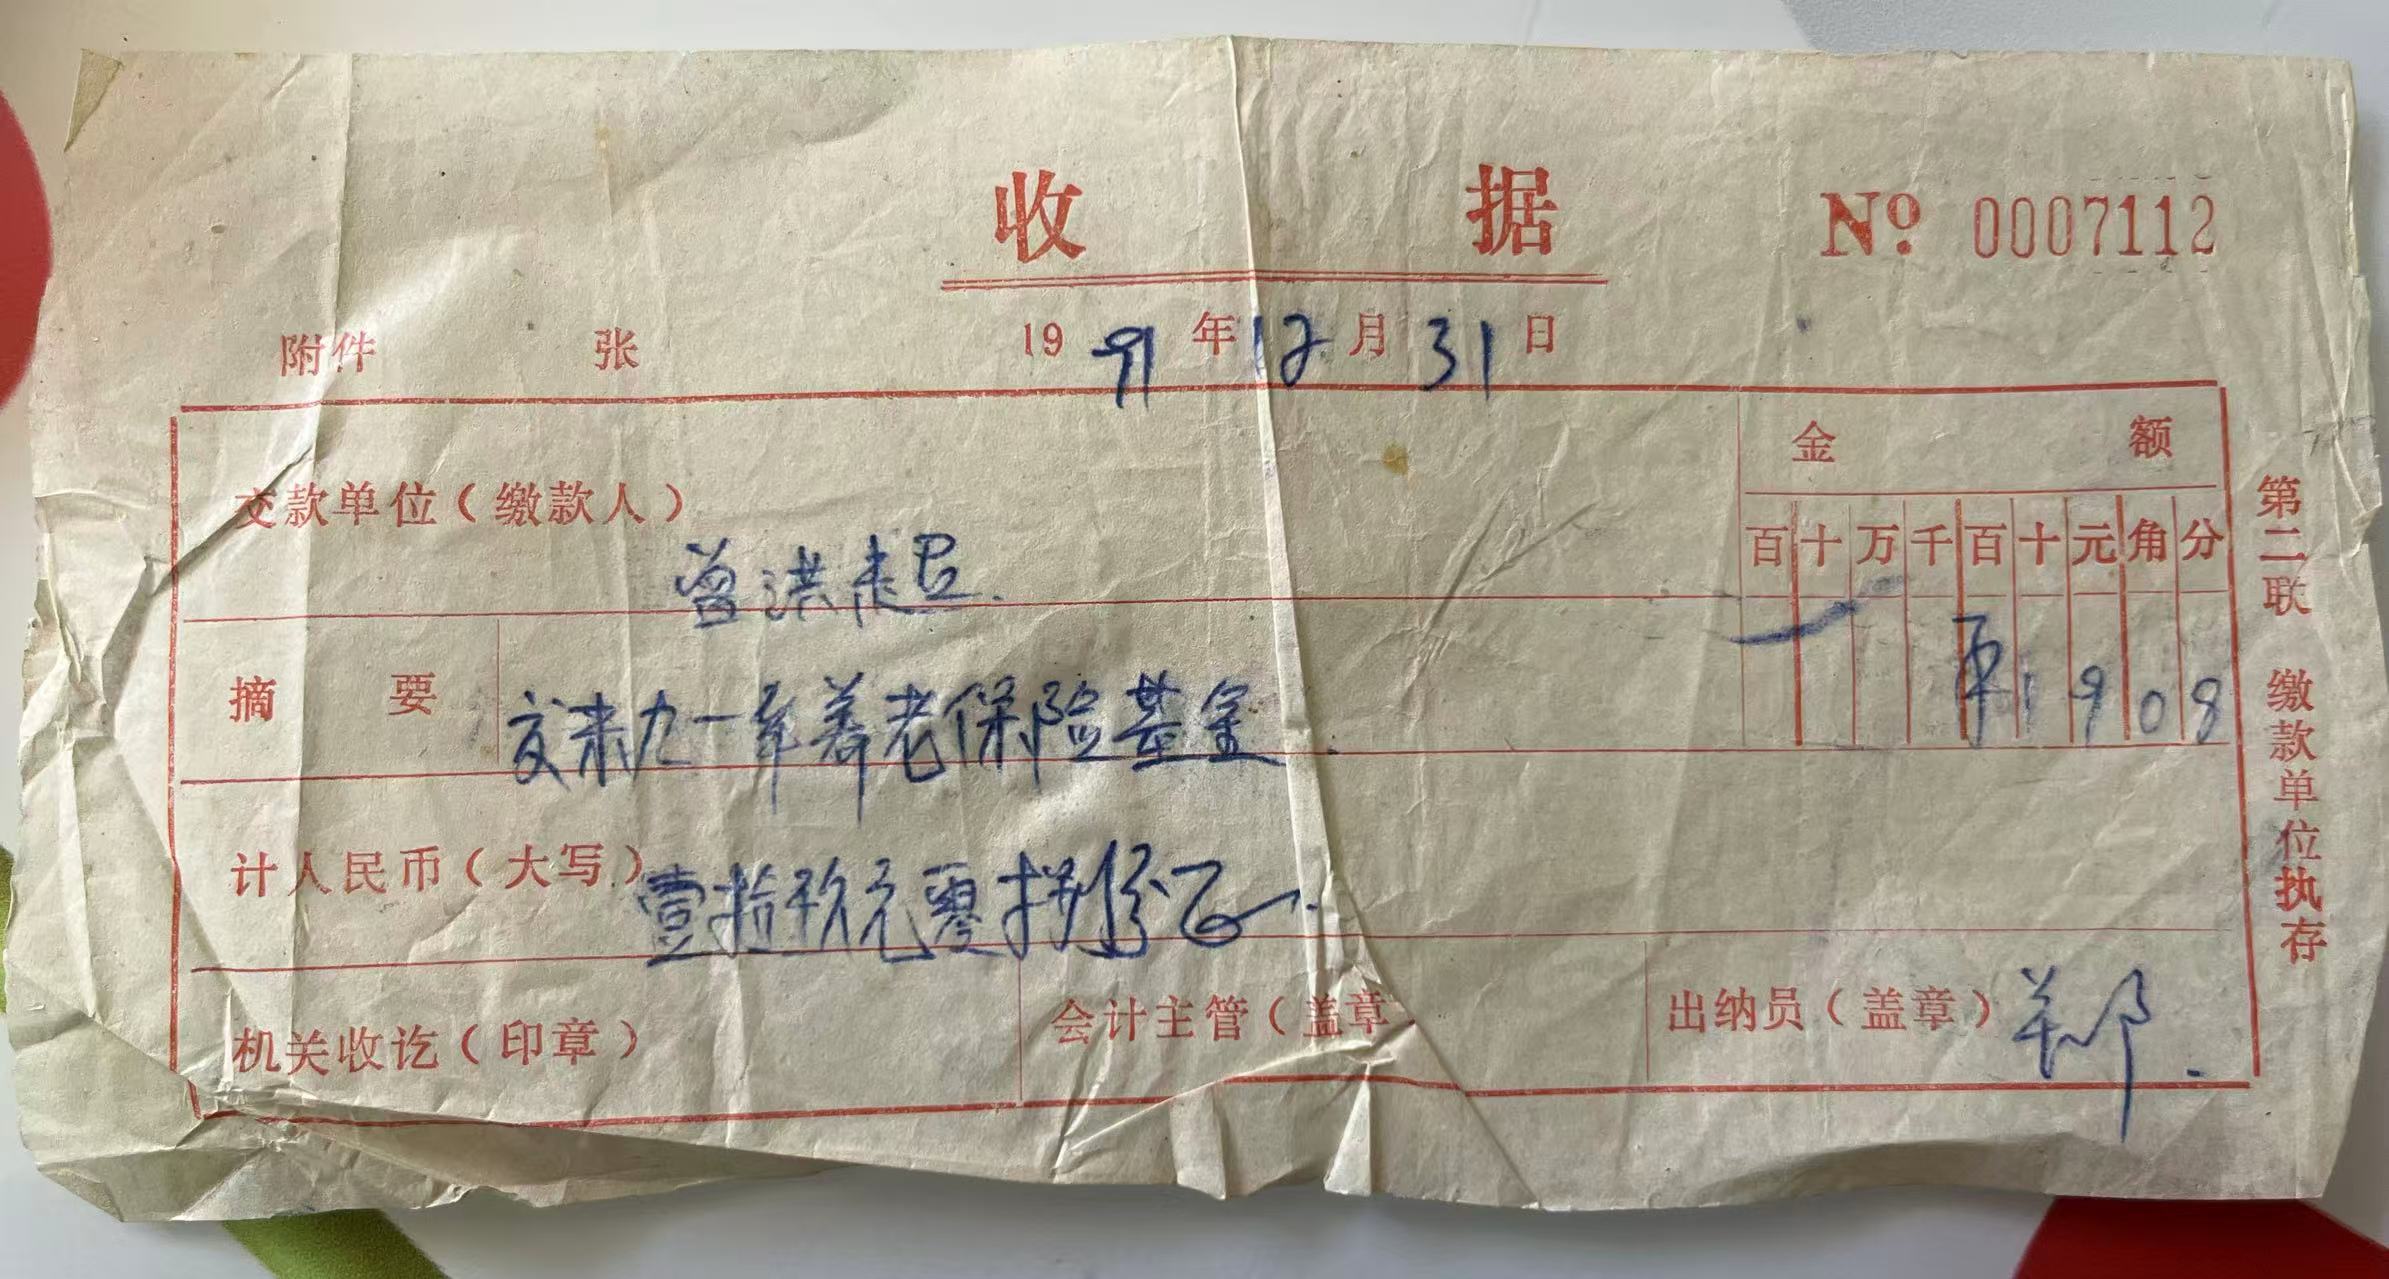 收 据
№ 0007112
附件 张 1991年12月31日
交款单位（缴款人） 曾洪起
金 额
百十万千百十元角分
1908
摘 要 交来九一年养老保险基金
计人民币（大写） 壹拾玖元零捌分正
机关收讫（印章） 会计主管（盖章 出纳员（盖章） 郑
第二联 缴款单位执存